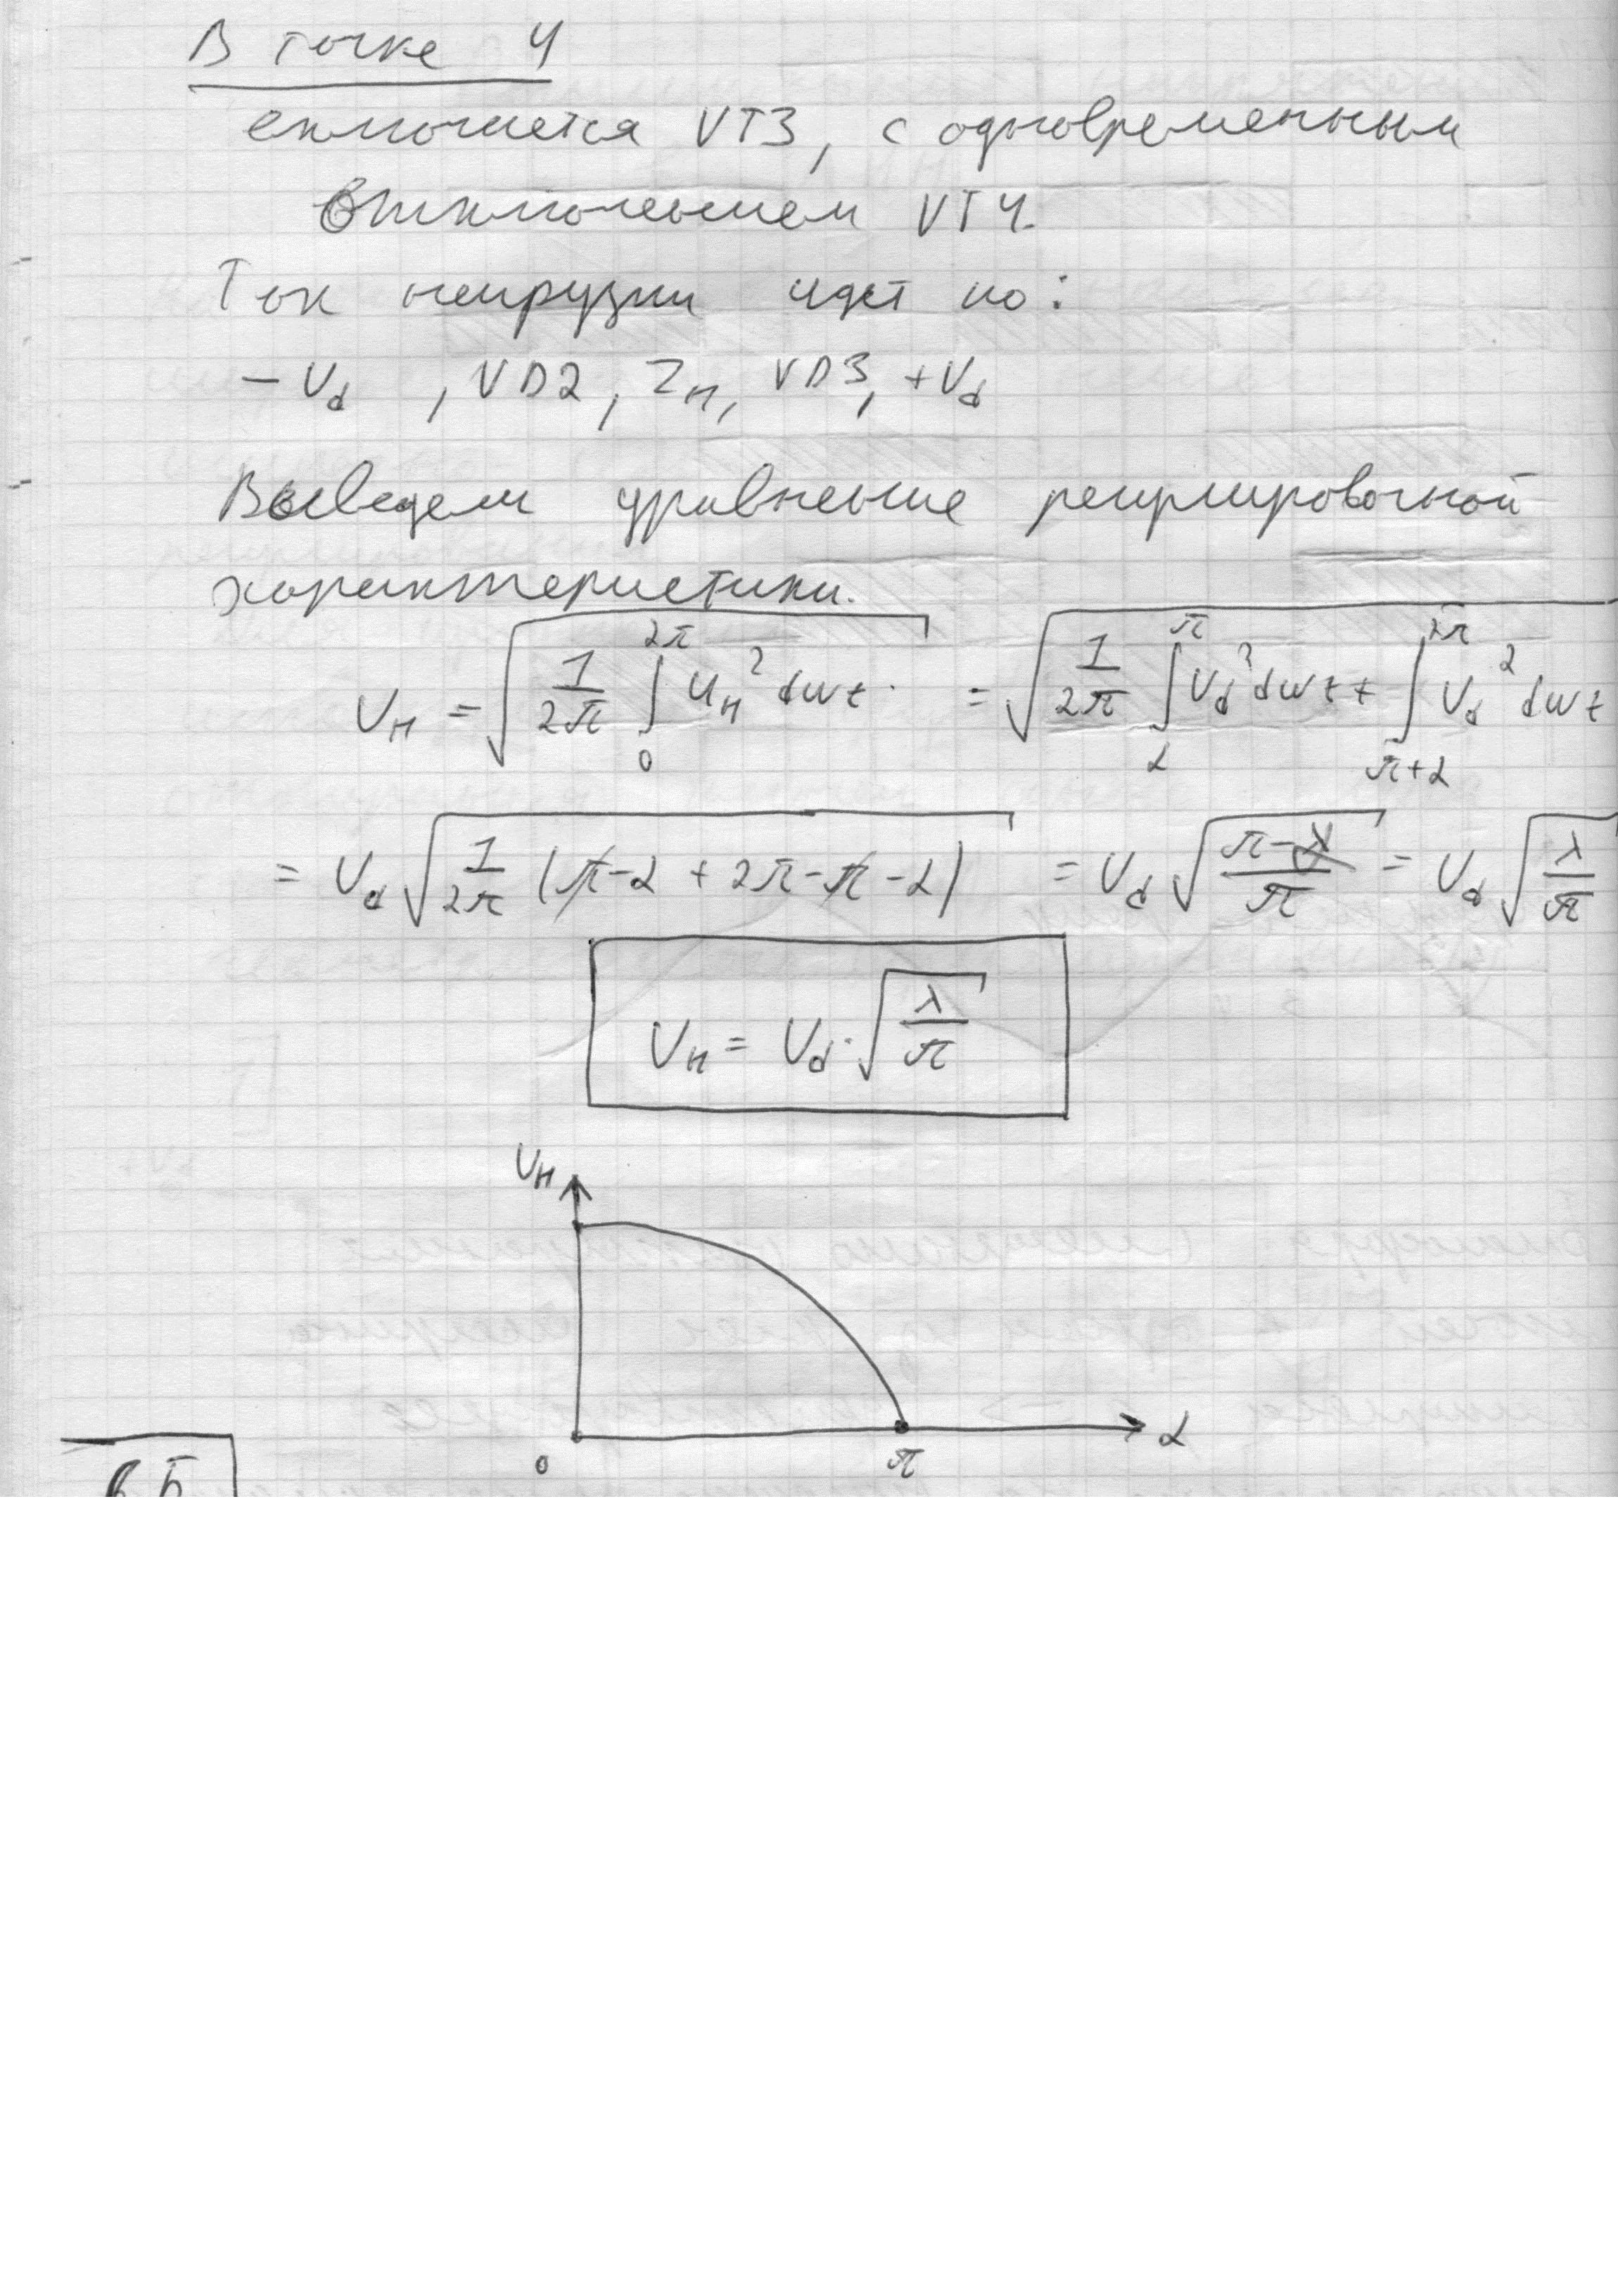 В точке 4
включается VT3, с одновременным
выключением VT4.
Ток нагрузки идет по:
- Ud , VD2, Zн, VD3, +Ud
Выведем уравнение регулировочной
характеристики.
Uн = √(1/2π ∫₀^2π uн² dωt) = √(1/2π ∫_α^π Ud² dωt + ∫_π+α^2π Ud² dωt
= Ud √(1/2π (π-α + 2π-π-α)) = Ud √((π-α)/π) = Ud √(λ/π)
Uн = Ud · √(λ/π)
Uн
0 π α